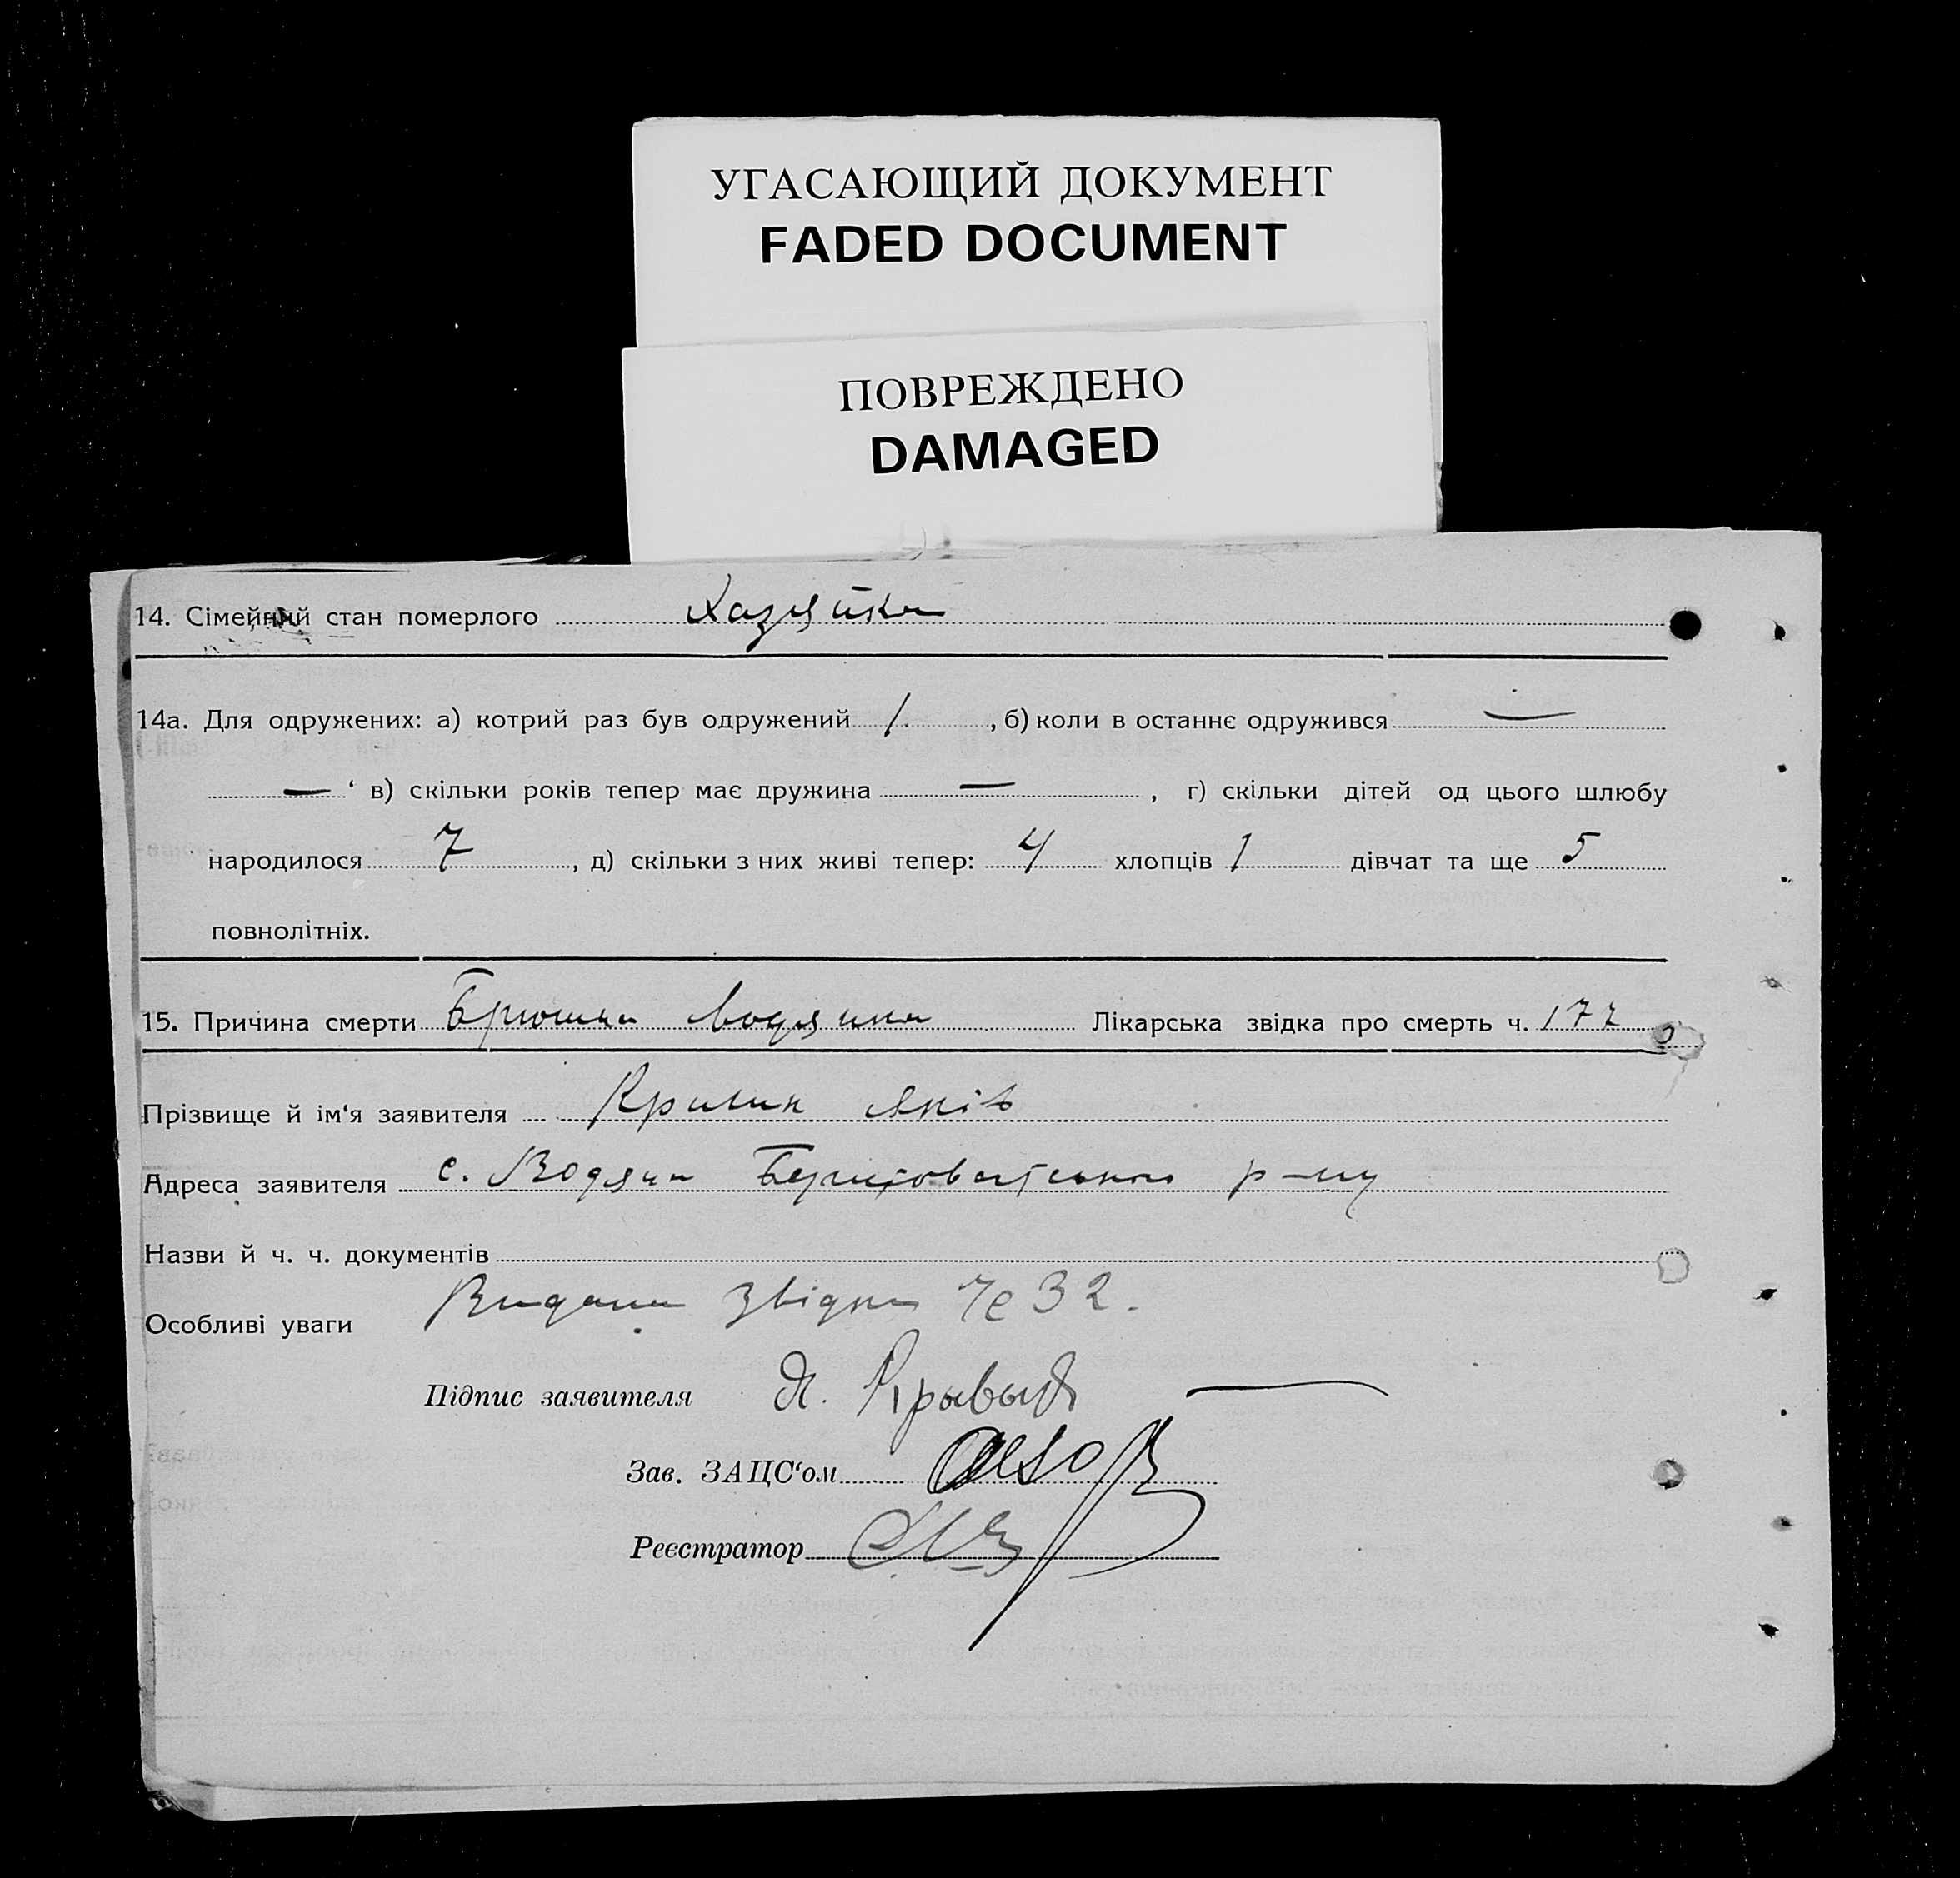 УГАСАЮЩИЙ ДОКУМЕНТ
FADED DOCUMENT
ПОВРЕЖДЕНО
DAMAGED
14. Сімейний стан померлого Хазяйка
14а. Для одружених: а) котрий раз був одружений 1. , б) коли в останнє одружився —
— ‘ в) скільки років тепер має дружина — , г) скільки дітей од цього шлюбу
народилося 7 , д) скільки з них живі тепер: 4 хлопців 1 дівчат та ще 5
повнолітніх.
15. Причина смерти Брюшна водянка Лікарська звідка про смерть ч. 177
Прізвище й ім‘я заявителя Яків
Адреса заявителя с. Водяна р-ну
Назви й ч. ч. документів
Особливі уваги Видана звідка № 32.
Підпис заявителя Я. —
Зав. ЗАЦС‘ом
Реєстратор